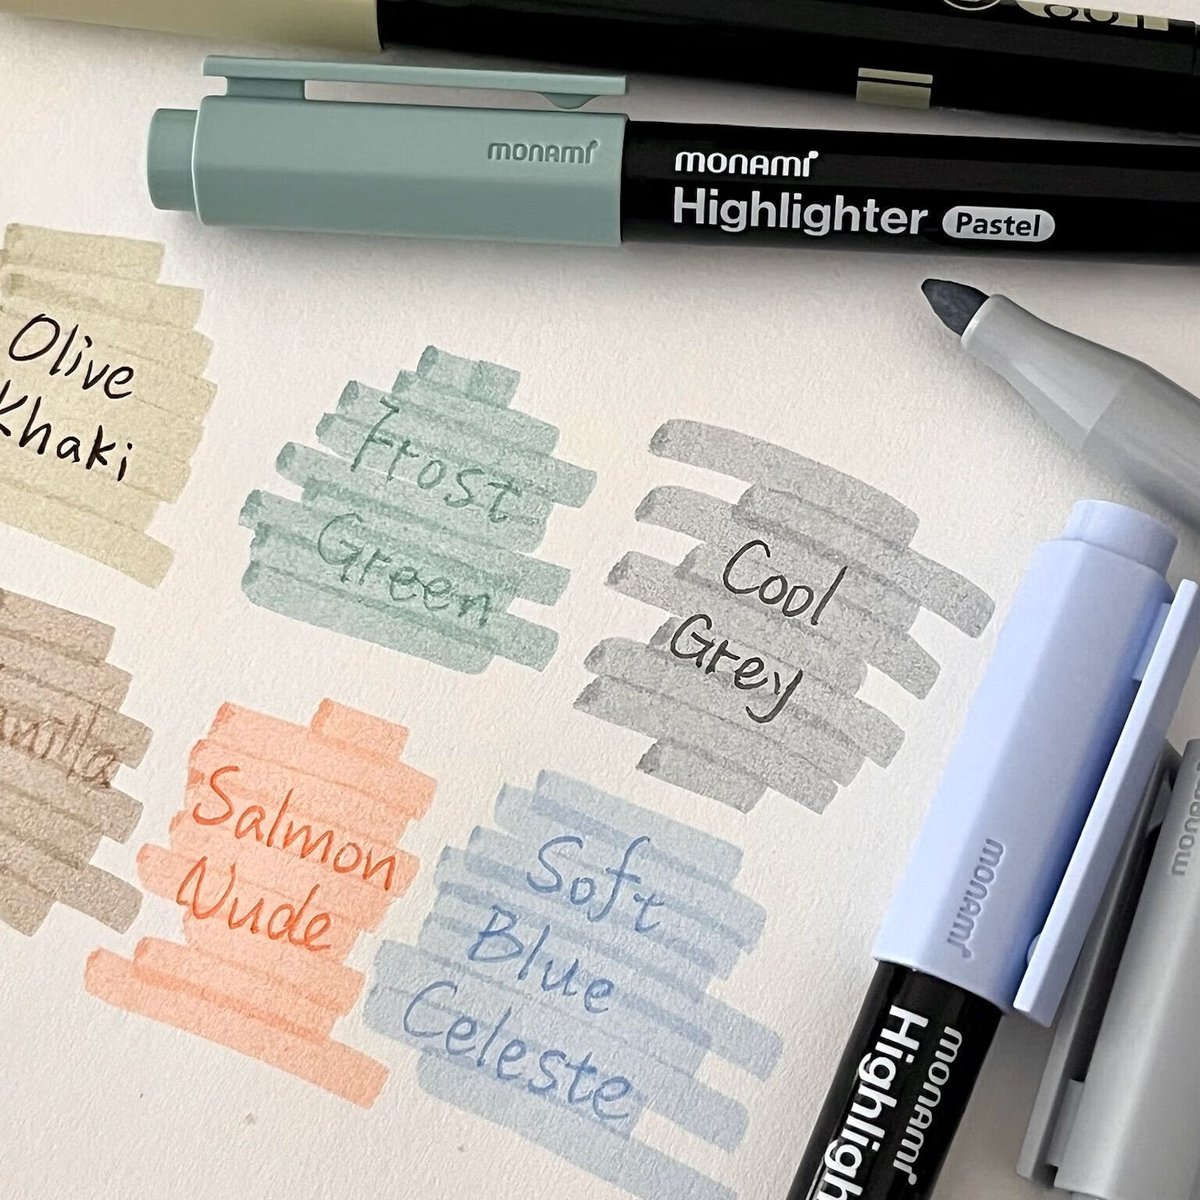 monami
monami
Highlighter Pastel
Olive
Khaki
Frost
Green
Cool
Grey
Salmon
Nude
Soft
Blue
Celeste
monami
monami
monami